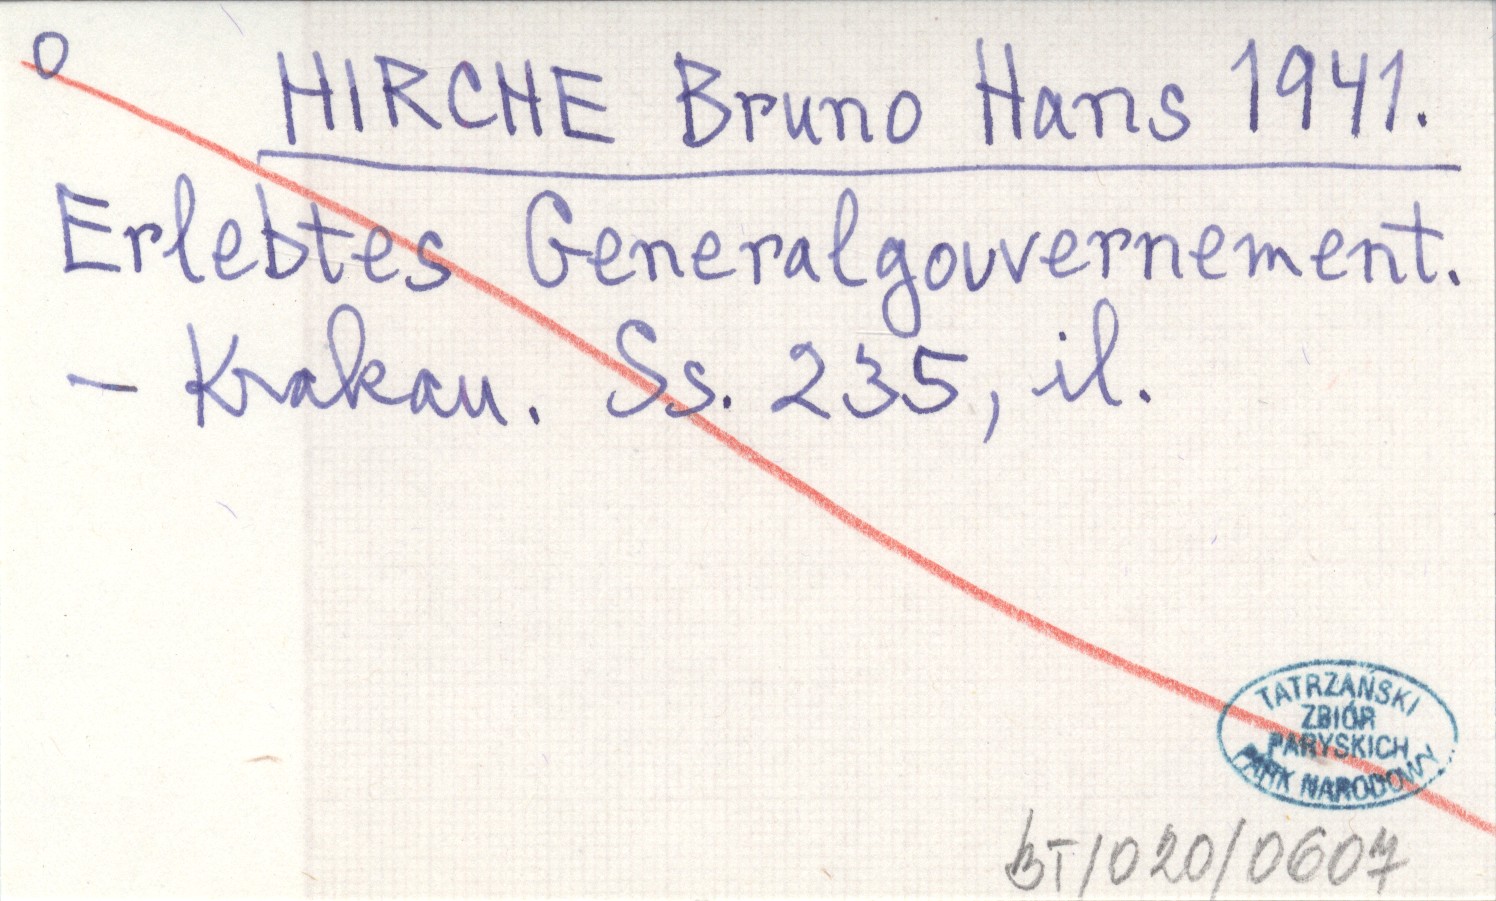 O
HIRCHE Bruno Hans 1941.
Erlebtes Generalgouvernement.
– Krakau. Ss. 235, il.
TATRZAŃSKI
ZBIÓR
PARYSKICH
PARK NARODOWY
BT/020/0607